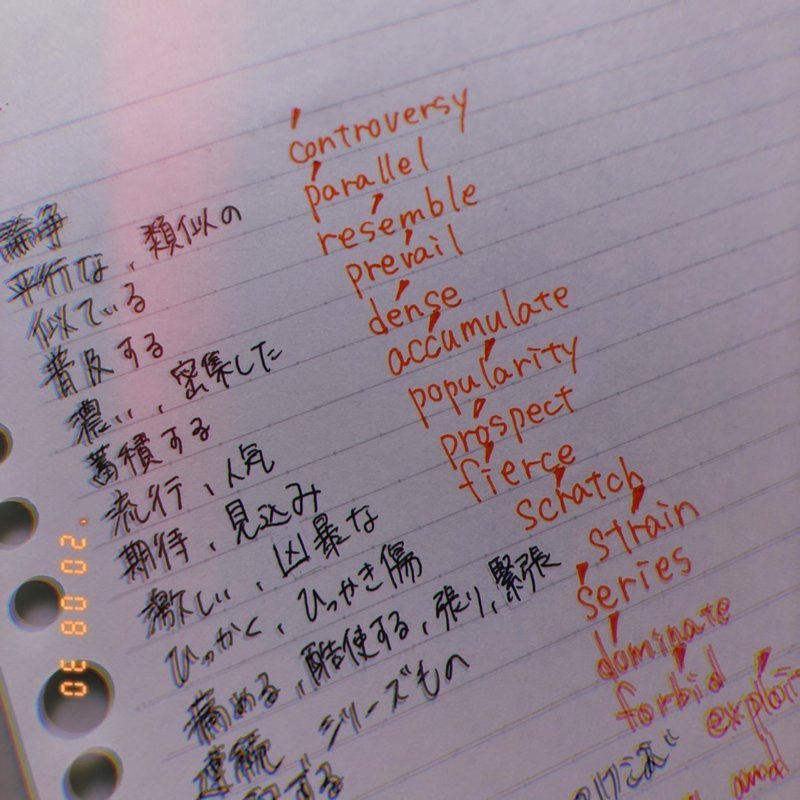 論争 controversy
平行な、類似の parallel
似ている resemble
普及する prevail
濃い、密集した dense
蓄積する accumulate
流行、人気 popularity
期待、見込み prospect
激しい、凶暴な fierce
ひっかく、ひっかき傷 scratch
痛める、酷使する、張り、緊張 strain
連続 シリーズもの series
する dominate
forbid
exploi
and
'20 08 30